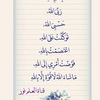 رَبِّيَ اللَّهُ
حَسْبِيَ اللَّهُ
تَوَكَّلْتُ عَلَى اللَّهِ
اعْتَصَمْتُ بِاللَّهِ
فَوَّضْتُ أَمْرِي إِلَى اللَّهِ
مَا شَاءَ اللَّهُ لَا قُوَّةَ إِلَّا بِاللَّهِ
قناة العلم نور